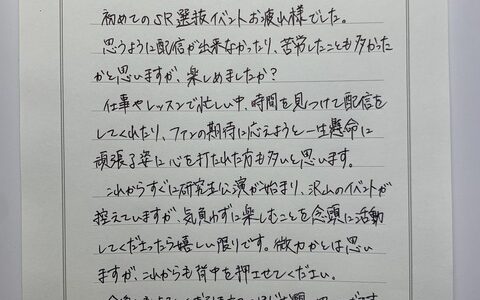 初めてのSR選抜イベントお疲れ様でした。
思うように配信が出来なかったり、苦労したことも多かった
かと思いますが、楽しめましたか?
仕事やレッスンで忙しい中、時間を見つけて配信を
してくれたり、ファンの期待に応えようと一生懸命に
頑張る姿に心を打たれた方も多いと思います。
これからすぐに研究生公演が始まり、沢山のイベントが
控えていますが、気負わずに楽しむことを念頭に活動
してくださったら嬉しい限りです。微力かとは思い
ますが、これからも背中を押させてください。